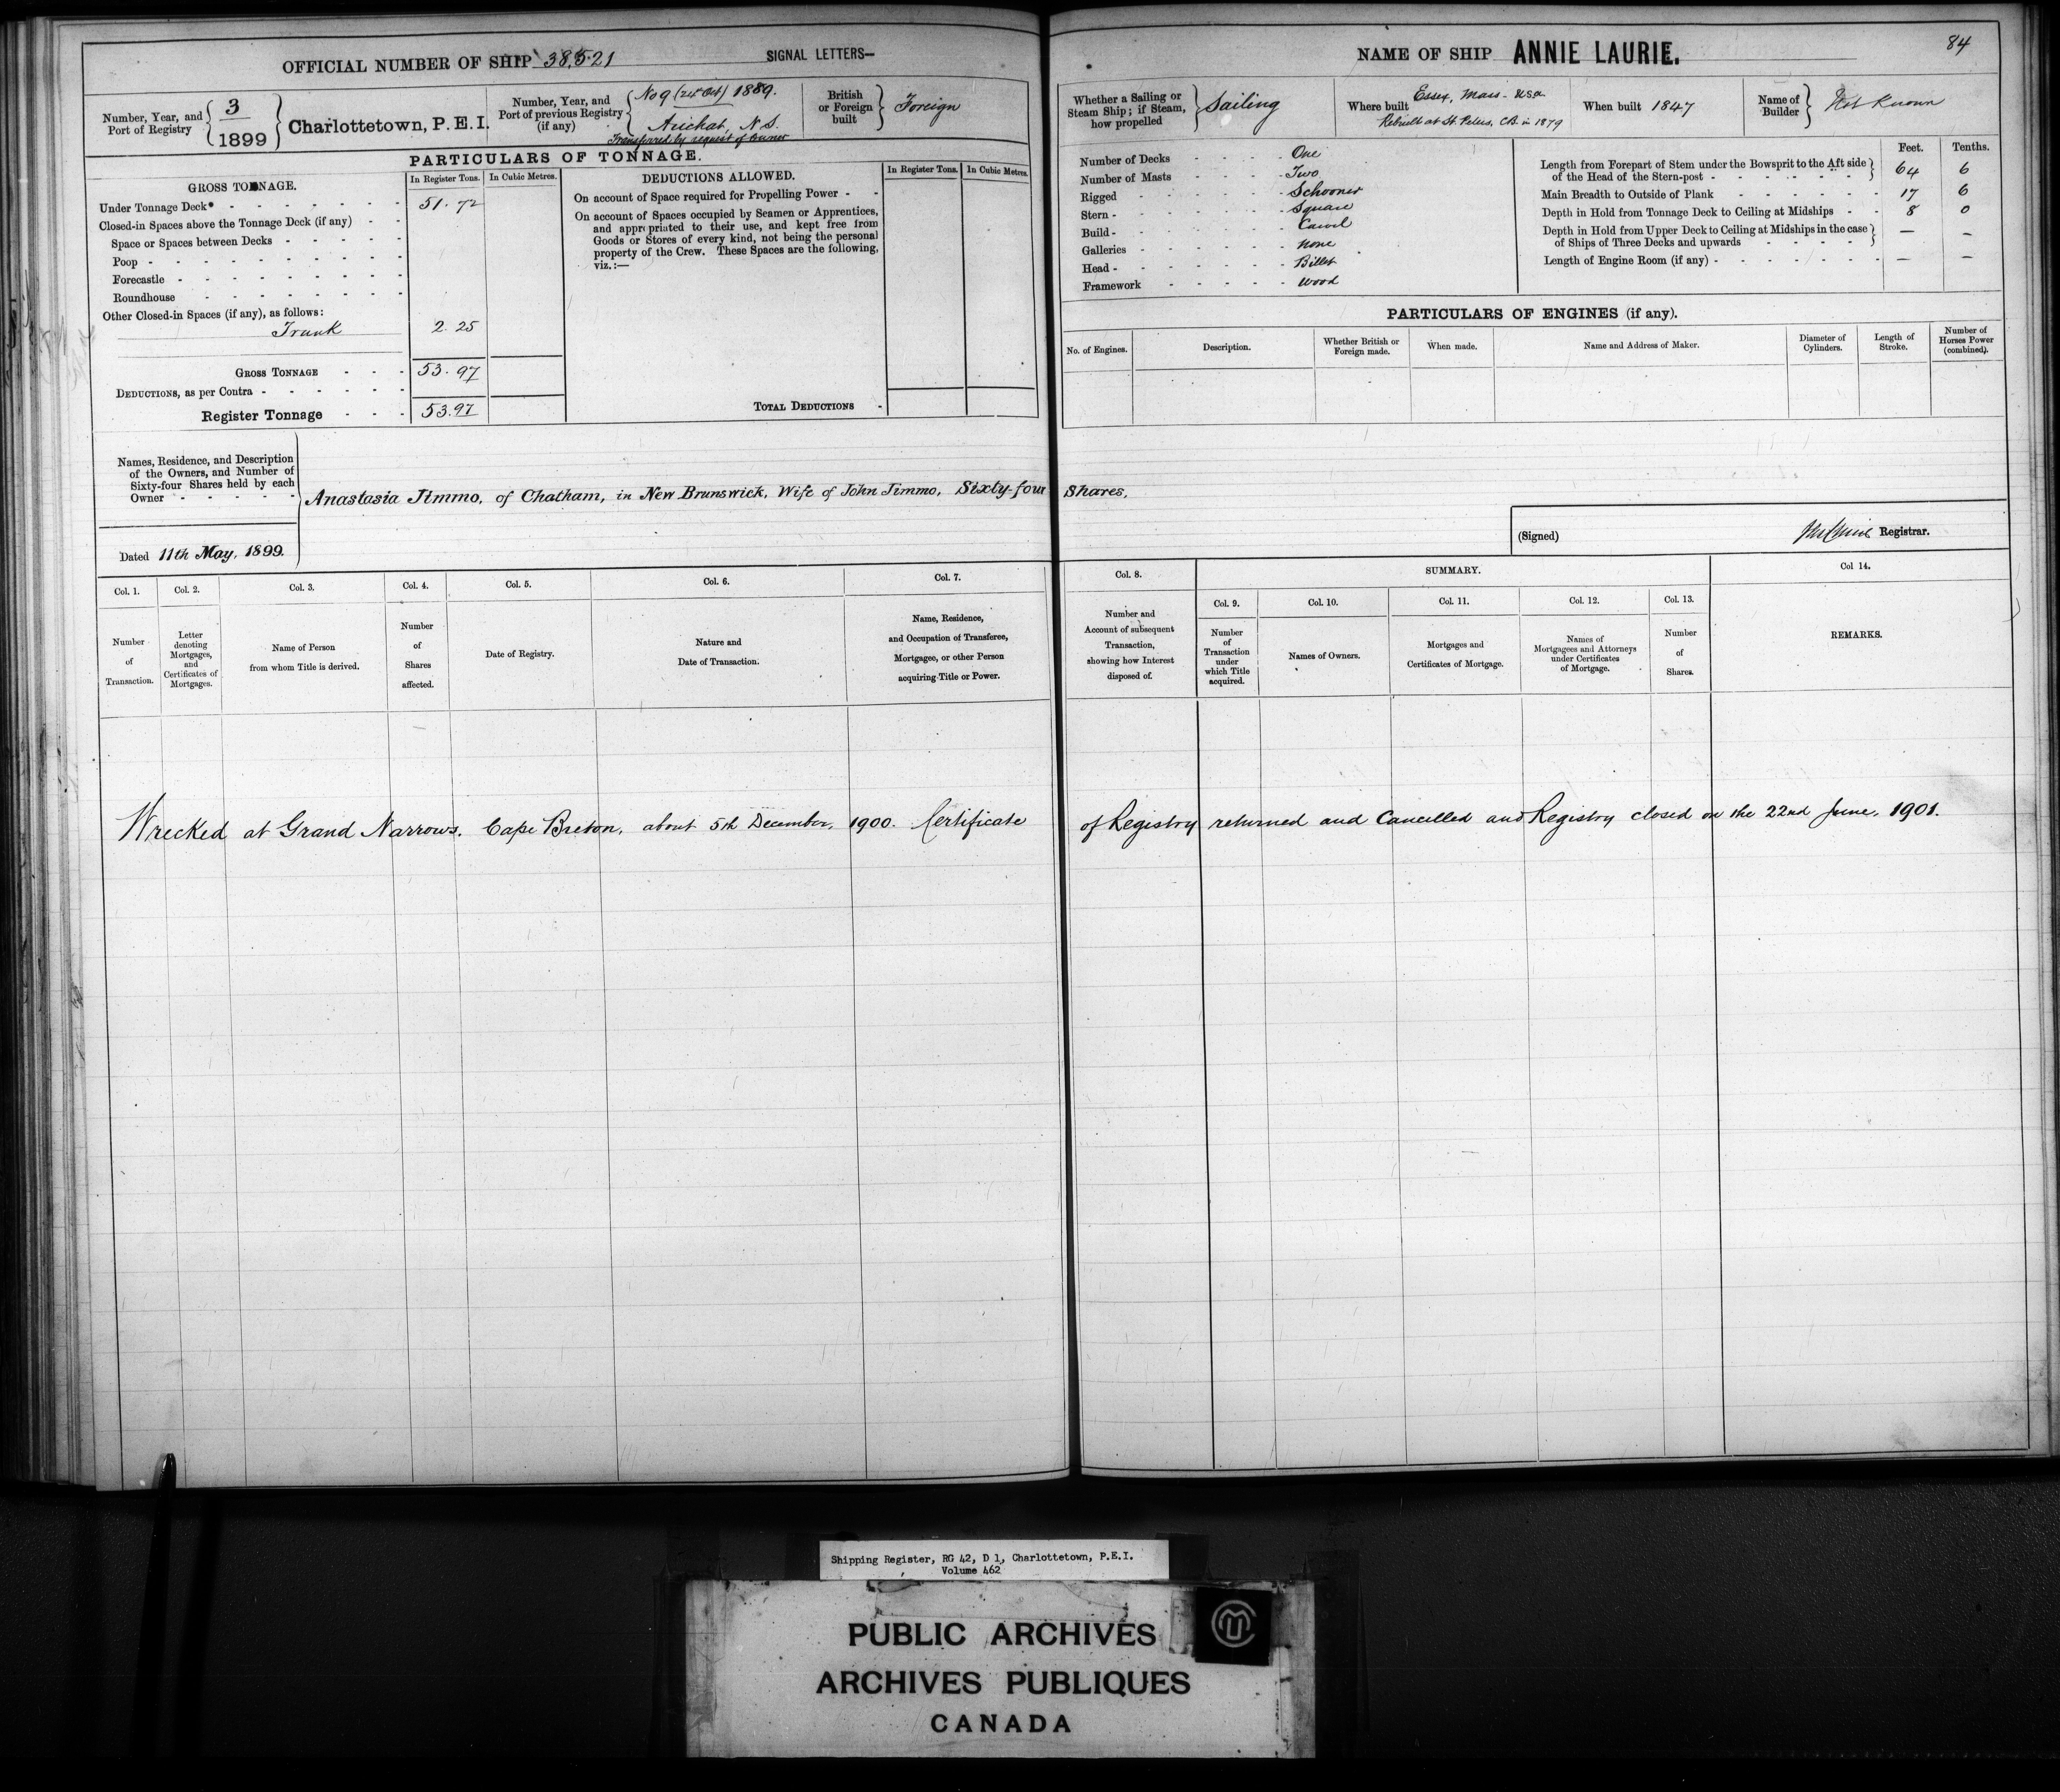 OFFICIAL NUMBER OF SHIP 38,521 SIGNAL LETTERS—
Number, Year, and Port of Registry { 3 / 1899 } Charlottetown, P.E.I.
Number, Year, and Port of previous Registry (if any) { No 9 1889. Arichat, N.S. Transferred by request of Owner
British or Foreign built } Foreign
PARTICULARS OF TONNAGE.
GROSS TONNAGE. In Register Tons. In Cubic Metres.
Under Tonnage Deck* 51.72
Closed-in Spaces above the Tonnage Deck (if any)
Space or Spaces between Decks
Poop
Forecastle
Roundhouse
Other Closed-in Spaces (if any), as follows:
Trunk 2.25
GROSS TONNAGE 53.97
DEDUCTIONS, as per Contra
Register Tonnage 53.97
DEDUCTIONS ALLOWED. In Register Tons. In Cubic Metres.
On account of Space required for Propelling Power
On account of Spaces occupied by Seamen or Apprentices,
and appropriated to their use, and kept free from
Goods or Stores of every kind, not being the personal
property of the Crew. These Spaces are the following,
viz.:—
TOTAL DEDUCTIONS
NAME OF SHIP ANNIE LAURIE. 84
Whether a Sailing or Steam Ship; if Steam, how propelled } Sailing
Where built Essex, Mass. USA
Rebuilt at St. Peters, C.B. in 1879
When built 1847
Name of Builder } Not Known
Number of Decks One
Number of Masts Two
Rigged Schooner
Stern Square
Build Carvel
Galleries None
Head Billet
Framework Wood
Feet. Tenths.
Length from Forepart of Stem under the Bowsprit to the Aft side
of the Head of the Stern-post 64 6
Main Breadth to Outside of Plank 17 6
Depth in Hold from Tonnage Deck to Ceiling at Midships 8 0
Depth in Hold from Upper Deck to Ceiling at Midships in the case
of Ships of Three Decks and upwards — —
Length of Engine Room (if any) — —
PARTICULARS OF ENGINES (if any).
No. of Engines. Description. Whether British or Foreign made. When made. Name and Address of Maker. Diameter of Cylinders. Length of Stroke. Number of Horses Power (combined).
Names, Residence, and Description
of the Owners, and Number of
Sixty-four Shares held by each
Owner
Anastasia Jimmo, of Chatham, in New Brunswick, Wife of John Jimmo, Sixty-four Shares.
Dated 11th May, 1899.
(Signed) Registrar.
Col. 1. Col. 2. Col. 3. Col. 4. Col. 5. Col. 6. Col. 7. Col. 8. SUMMARY. Col 14.
Col. 9. Col. 10. Col. 11. Col. 12. Col. 13.
Number of Transaction.
Letter denoting Mortgages, and Certificates of Mortgages.
Name of Person from whom Title is derived.
Number of Shares affected.
Date of Registry.
Nature and Date of Transaction.
Name, Residence, and Occupation of Transferee, Mortgagee, or other Person acquiring Title or Power.
Number and Account of subsequent Transaction, showing how Interest disposed of.
Number of Transaction under which Title acquired.
Names of Owners.
Mortgages and Certificates of Mortgage.
Names of Mortgagees and Attorneys under Certificates of Mortgage.
Number of Shares.
REMARKS.
Wrecked at Grand Narrows, Cape Breton, about 5th December, 1900. Certificate of Registry returned and Cancelled and Registry closed on the 22nd June, 1901.
Shipping Register, RG 42, D 1, Charlottetown, P.E.I.
Volume 462
PUBLIC ARCHIVES
ARCHIVES PUBLIQUES
CANADA